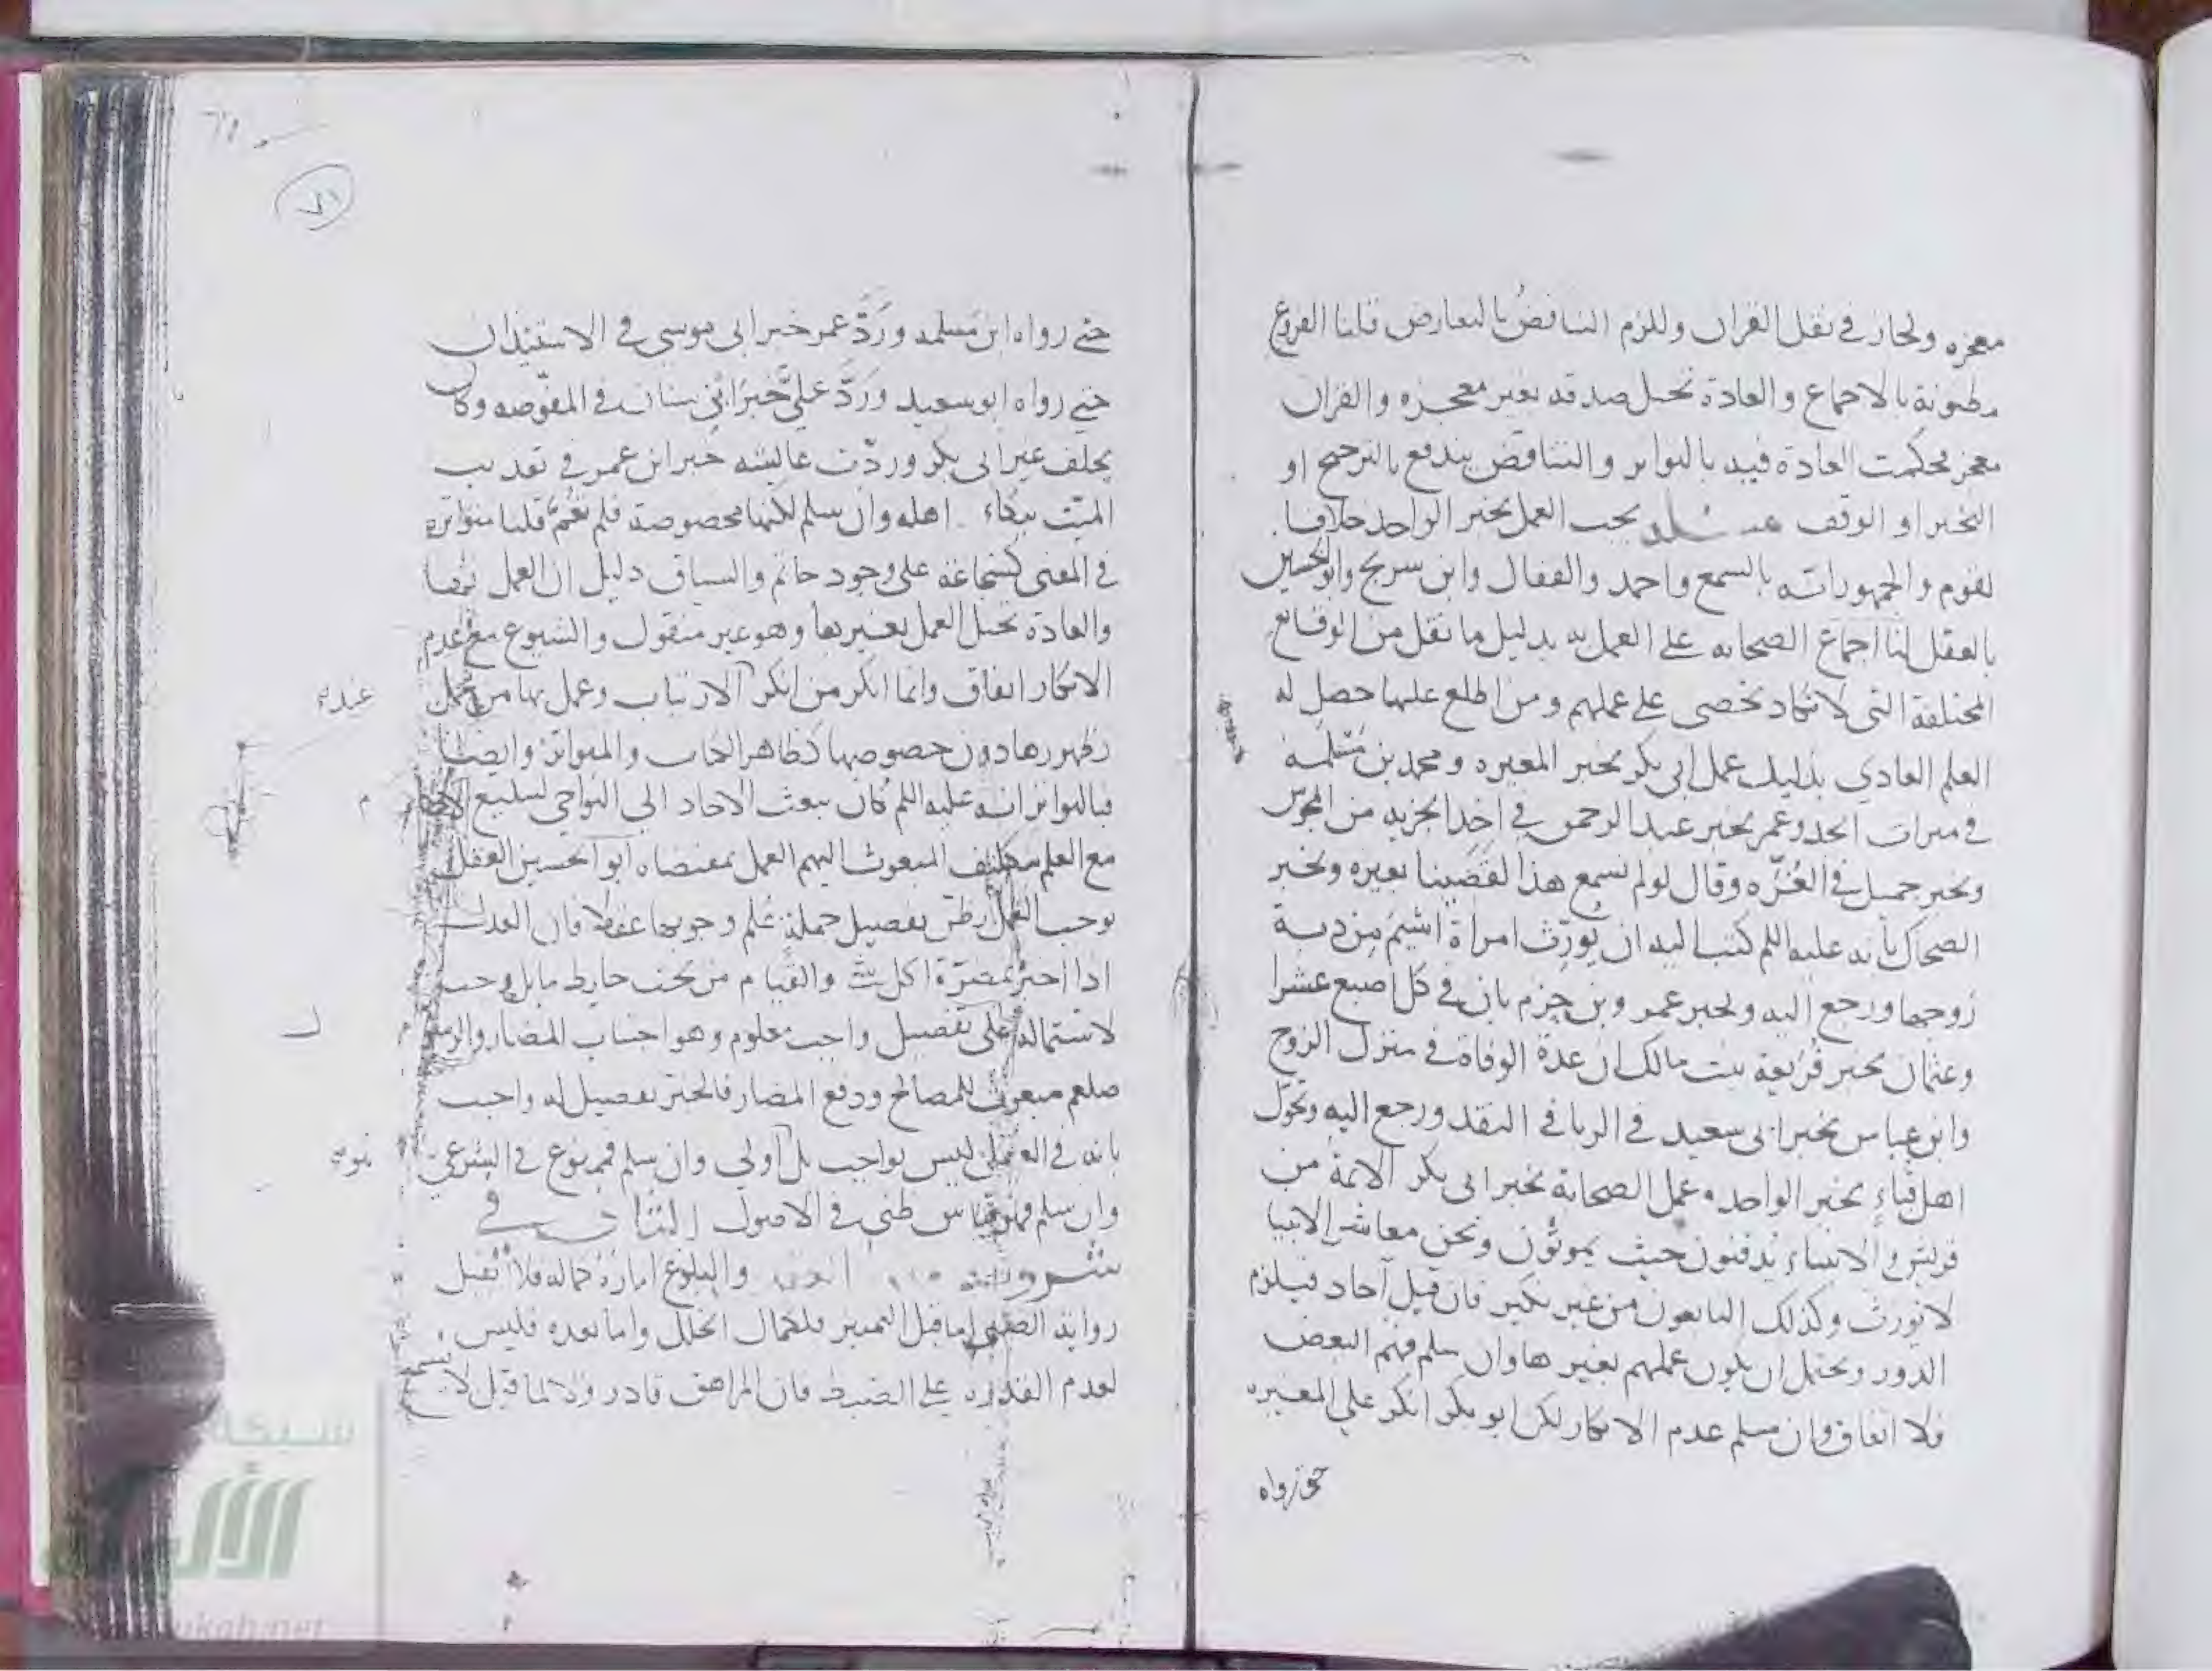 معجزه ولجاز في نقل القران وللزم التناقض بالتعارض قلنا الفروع
مظنونة بالاجماع والعادة تحيل صدقه بغير معجزه والقران
معجز فحكمت العادة فيه بالتواتر والتناقض يندفع بالترجيح او
التخير او الوقف مسئلة يجب العمل بخبر الواحد خلافا
لقوم والجمهور انه بالسمع واحمد والقفال وابن سريج وابو الحسين
بالعقل لنا اجماع الصحابه على العمل به بدليل ما نقل من الوقائع
المختلفة التي لا تكاد تحصى على عملهم ومن اطلع عليها حصل له
العلم العادي بذلك عمل ابي بكر بخبر المغيره ومحمد بن مسلمة
في ميراث الجد وعمر بخبر عبد الرحمن في اخذ الجزيه من المجوس
وبخبر حمل في الغرّه وقال لو لم نسمع هذا لقضينا بغيره وبخبر
الضحاك بأنه عليه السلم كتب اليه ان يورّث امراة اشيم من دية
زوجها ورجع اليه وبخبر عمرو بن حزم بان في كل اصبع عشرا
وعثمان بخبر فُريعة بنت مالك ان عدة الوفاة في منزل الزوج
وابن عباس بخبر ابي سعيد في الربا في النقد ورجع اليه وتحوّل
اهل قباء بخبر الواحد وعمل الصحابة بخبر ابي بكر الائمة من
قريش والانبياء يدفنون حيث يموتون ونحن معاشر الانبيا
لا نورث وكذلك التابعون من غير نكير فان قيل آحاد فيلزم
الدور ويحتمل ان يكون عملهم بغيرها وان سلم فهم البعض
فلا اتفاق وان سلم عدم الانكار لكن ابو بكر انكر على المغيره
حتى رواه
حتى رواه ابن مسلمه وردّ عمر خبر ابي موسى في الاستيذان
حتى رواه ابو سعيد وردّ عليّ خبر ابي سنان في المفوّضه وكان
يحلف غير ابي بكر وردّت عائشه خبر ابن عمر في تعذيب
الميّت ببكاء اهله وان سلم لكنها مخصوصة فلم تعمّ قلنا متواتره
في المعنى كشجاعة علي وجود حاتم والسياق دليل ان العمل بها
والعادة تحيل العمل بغيرها وهو غير منقول والشيوع مع عدم
الانكار اتفاق وانما انكر من انكر الارتياب وعمل بها من اجل
ظهورها دون خصوصها كظاهر الكتاب والمتواتر وايضا
فبالتواتر انه عليه السلم كان يبعث الاحاد الى النواحي لتبليغ
مع العلم بتكليف المبعوث اليهم العمل بمقتضاه ابو الحسين العقل
يوجب العمل بظن تفصيل جملة علم وجوبها عقلا فان العدل
اذا اخبر بمضرّة اكل شي والقيام من تحت حايط مايل وجب
لاشتماله على تفصيل واجب معلوم وهو اجتناب المضار والرسول
صلعم مبعوث للمصالح ودفع المضار فالخبر تفصيل له واجيب
بانه في العقلي ليس بواجب بل اولى وان سلم فممنوع في الشرعي
وان سلم فهو قياس ظني في الاصول الثاني في
شروطه والبلوغ امارة كماله فلا تقبل
رواية الصبي اما قبل التمييز فلكمال الخلل واما بعده فليس
لعدم القدره على الضبط فان المراهق قادر